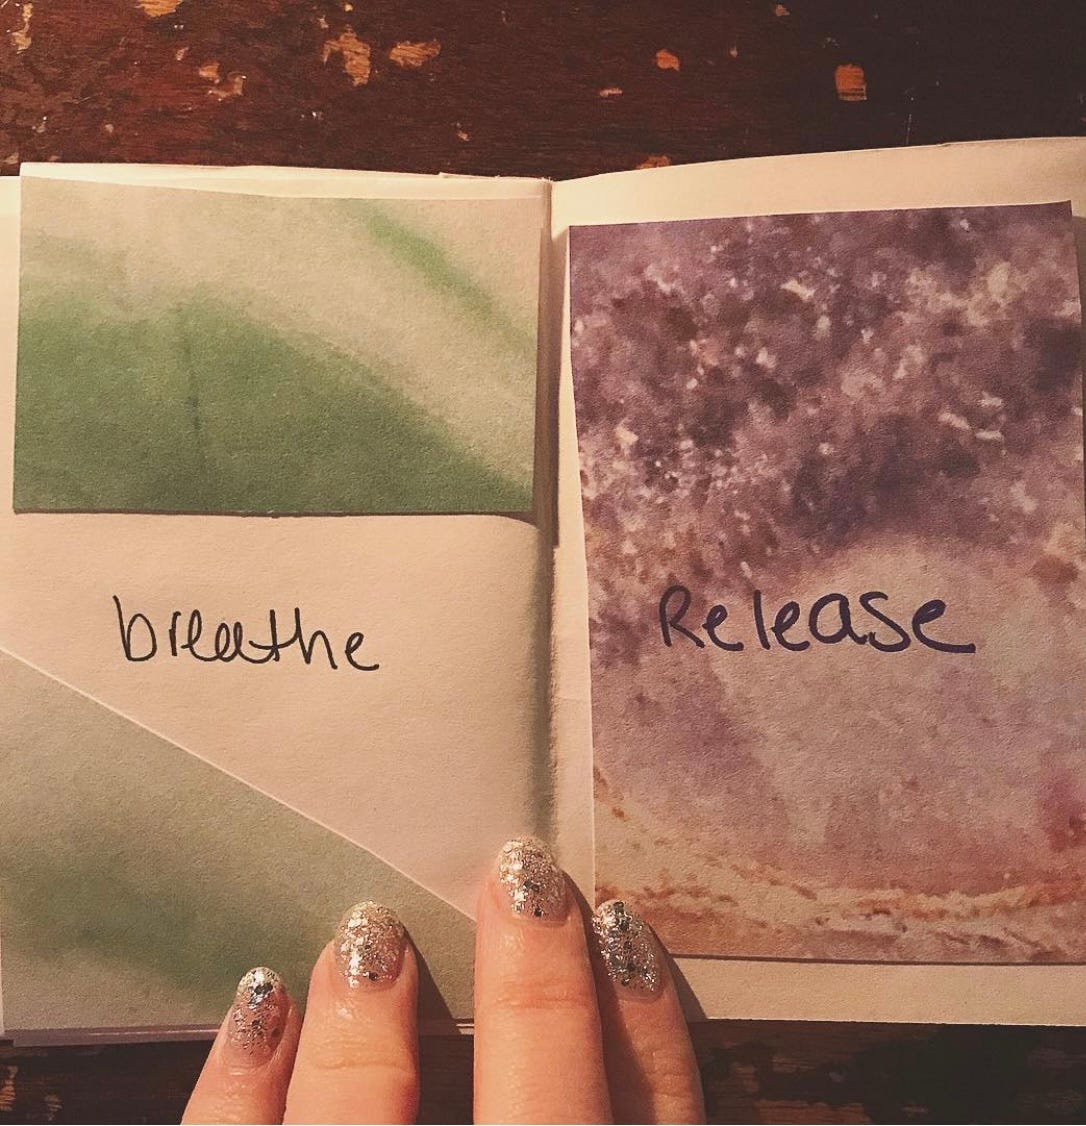 breathe
Release